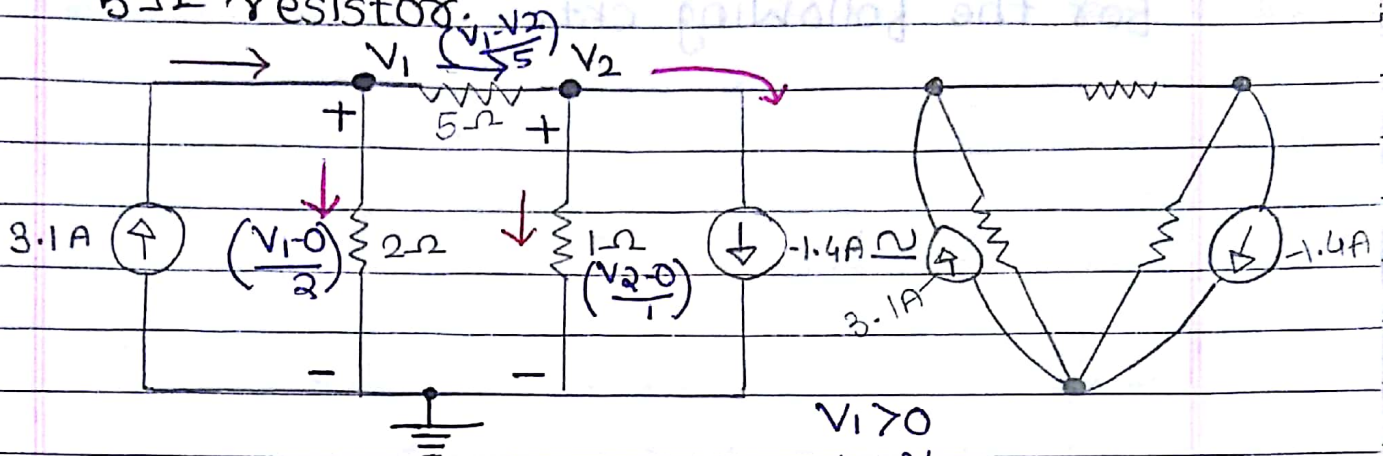 5Ω resistor.
V1 (V1-V2)/5 V2
+ 5Ω +
3.1A (V1-0)/2 2Ω 1Ω (V2-0)/1 -1.4A ≃ 3.1A -1.4A
- -
V1>0